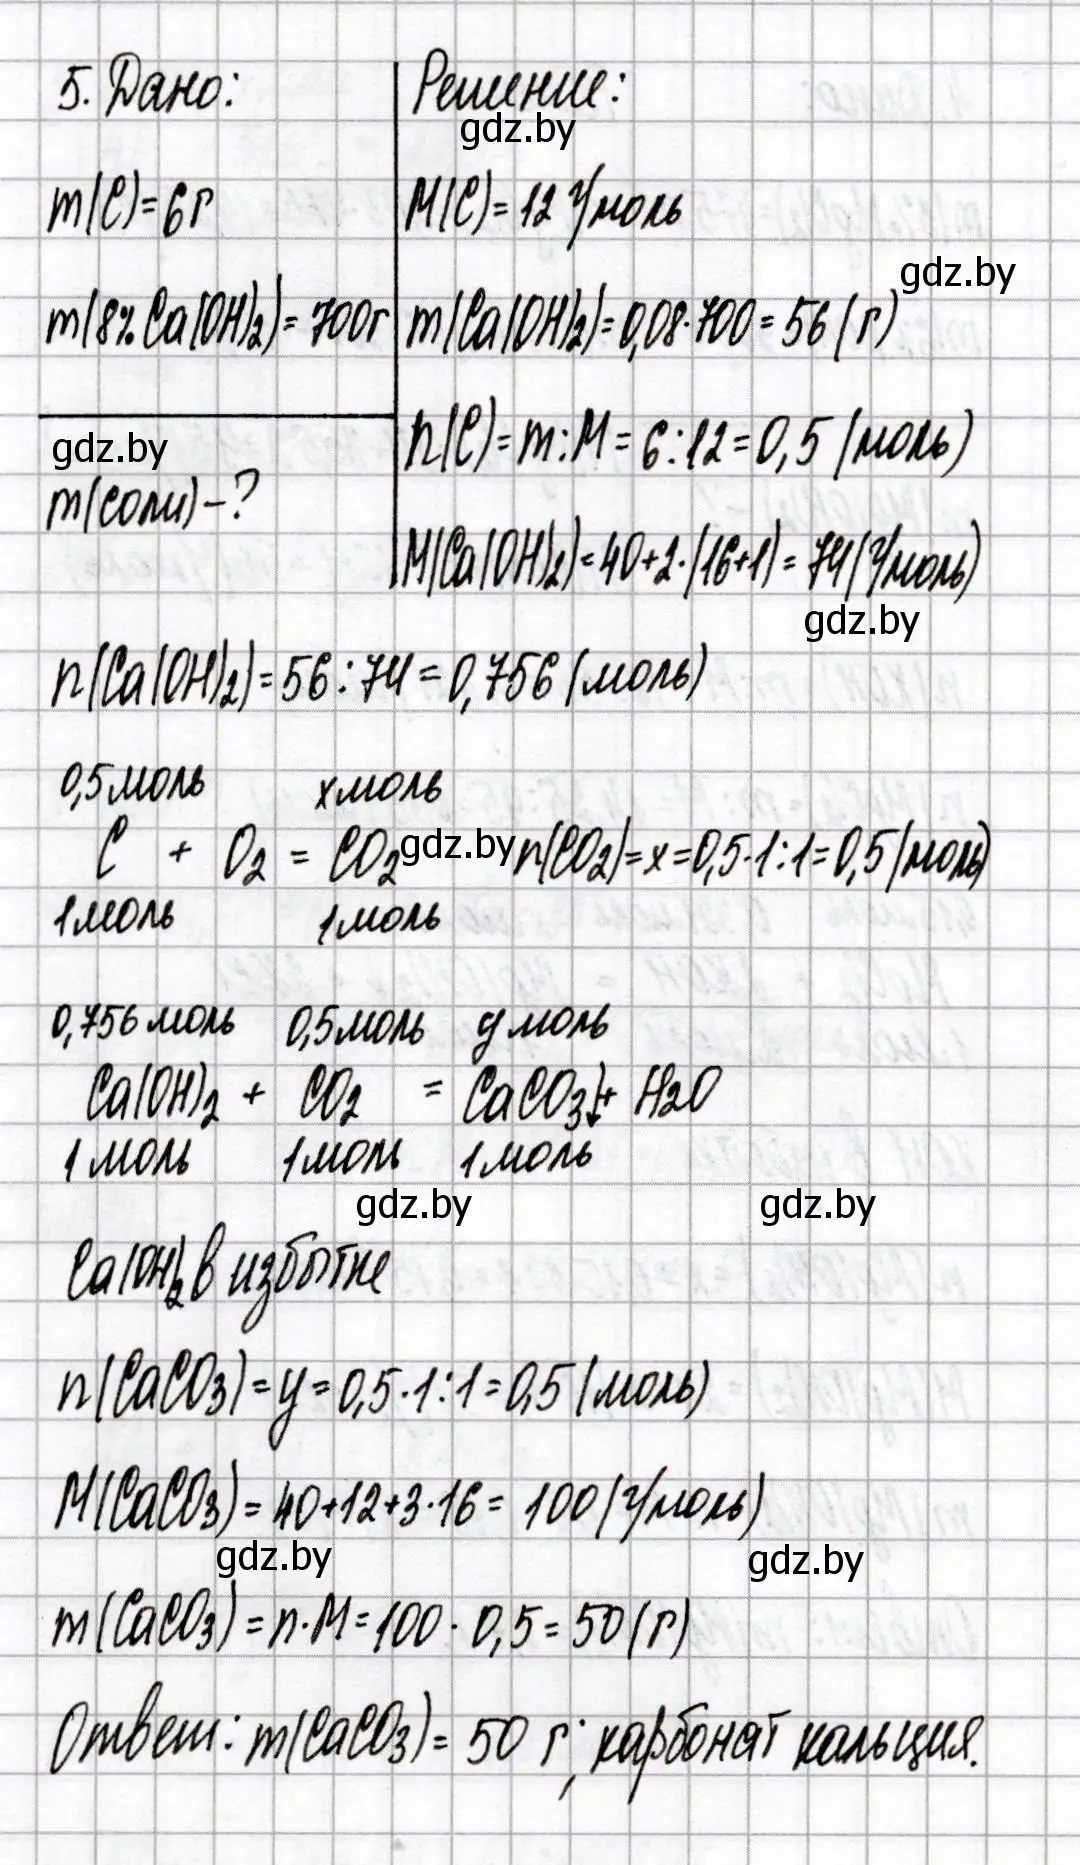 5. Дано:
Решение:
gdz.by
m(C)=6г
M(C)=12 г/моль
gdz.by
m(8% Ca(OH)₂)=700г
m(Ca(OH)₂)=0,08·700=56(г)
n(C)=m:M=6:12=0,5(моль)
gdz.by
m(соли)-?
M(Ca(OH)₂)=40+2·(16+1)=74(г/моль)
gdz.by
n(Ca(OH)₂)=56:74=0,756(моль)
0,5моль xмоль
C + O₂ = CO₂ gdz.by n(CO₂)=x=0,5·1:1=0,5(моль)
1моль 1моль
0,756моль 0,5моль yмоль
Ca(OH)₂ + CO₂ = CaCO₃↓+ H₂O
1моль 1моль 1моль
gdz.by gdz.by
Ca(OH)₂ в избытке
n(CaCO₃)=y=0,5·1:1=0,5(моль)
M(CaCO₃)=40+12+3·16=100(г/моль)
gdz.by gdz.by
m(CaCO₃)=n·M=100·0,5=50(г)
Ответ: m(CaCO₃)=50 г; карбонат кальция.